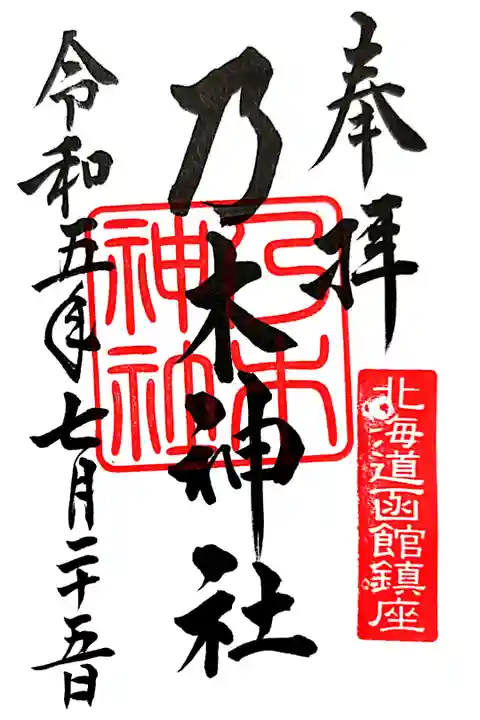 奉拝
北海道函館鎮座
乃木神社
乃木
神社
令和五年七月二十五日